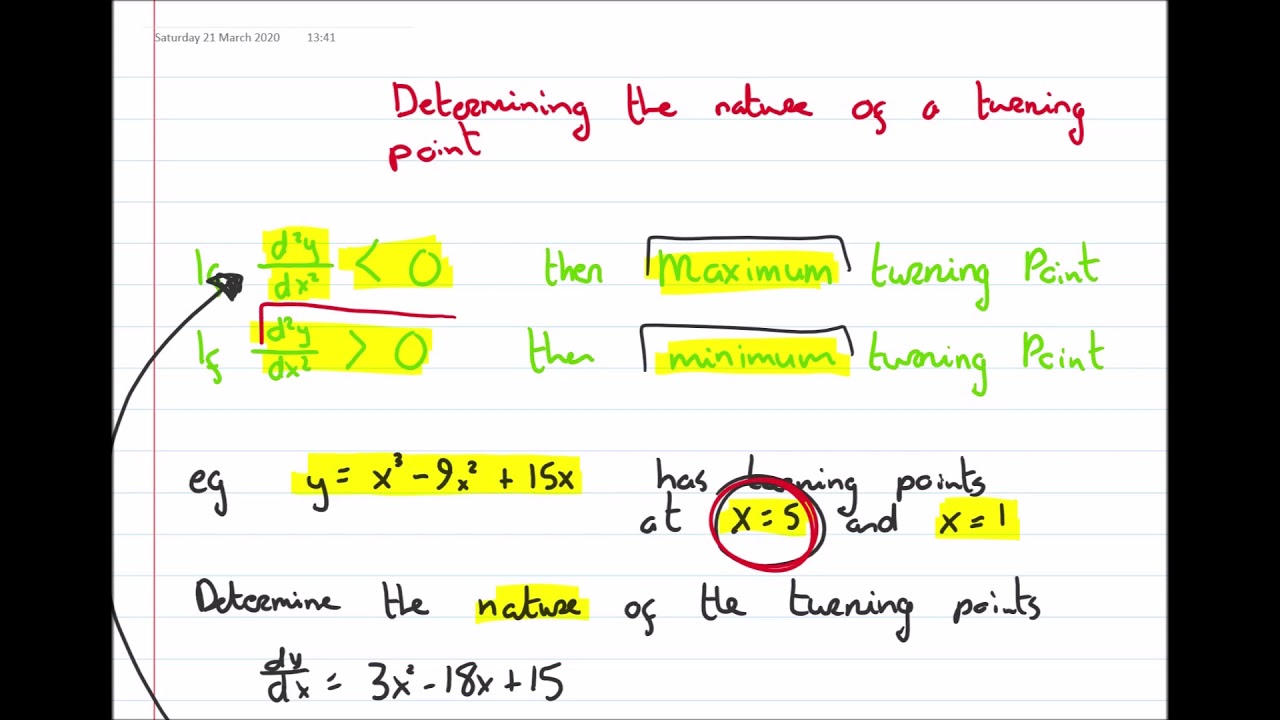 Saturday 21 March 2020 13:41
Determining the nature of a turning
point
If d²y/dx² < 0 then Maximum turning Point
If d²y/dx² > 0 then minimum turning Point
eg y = x³ - 9x² + 15x has turning points
at x = 5 and x = 1
Determine the nature of the turning points
dy/dx = 3x² - 18x + 15